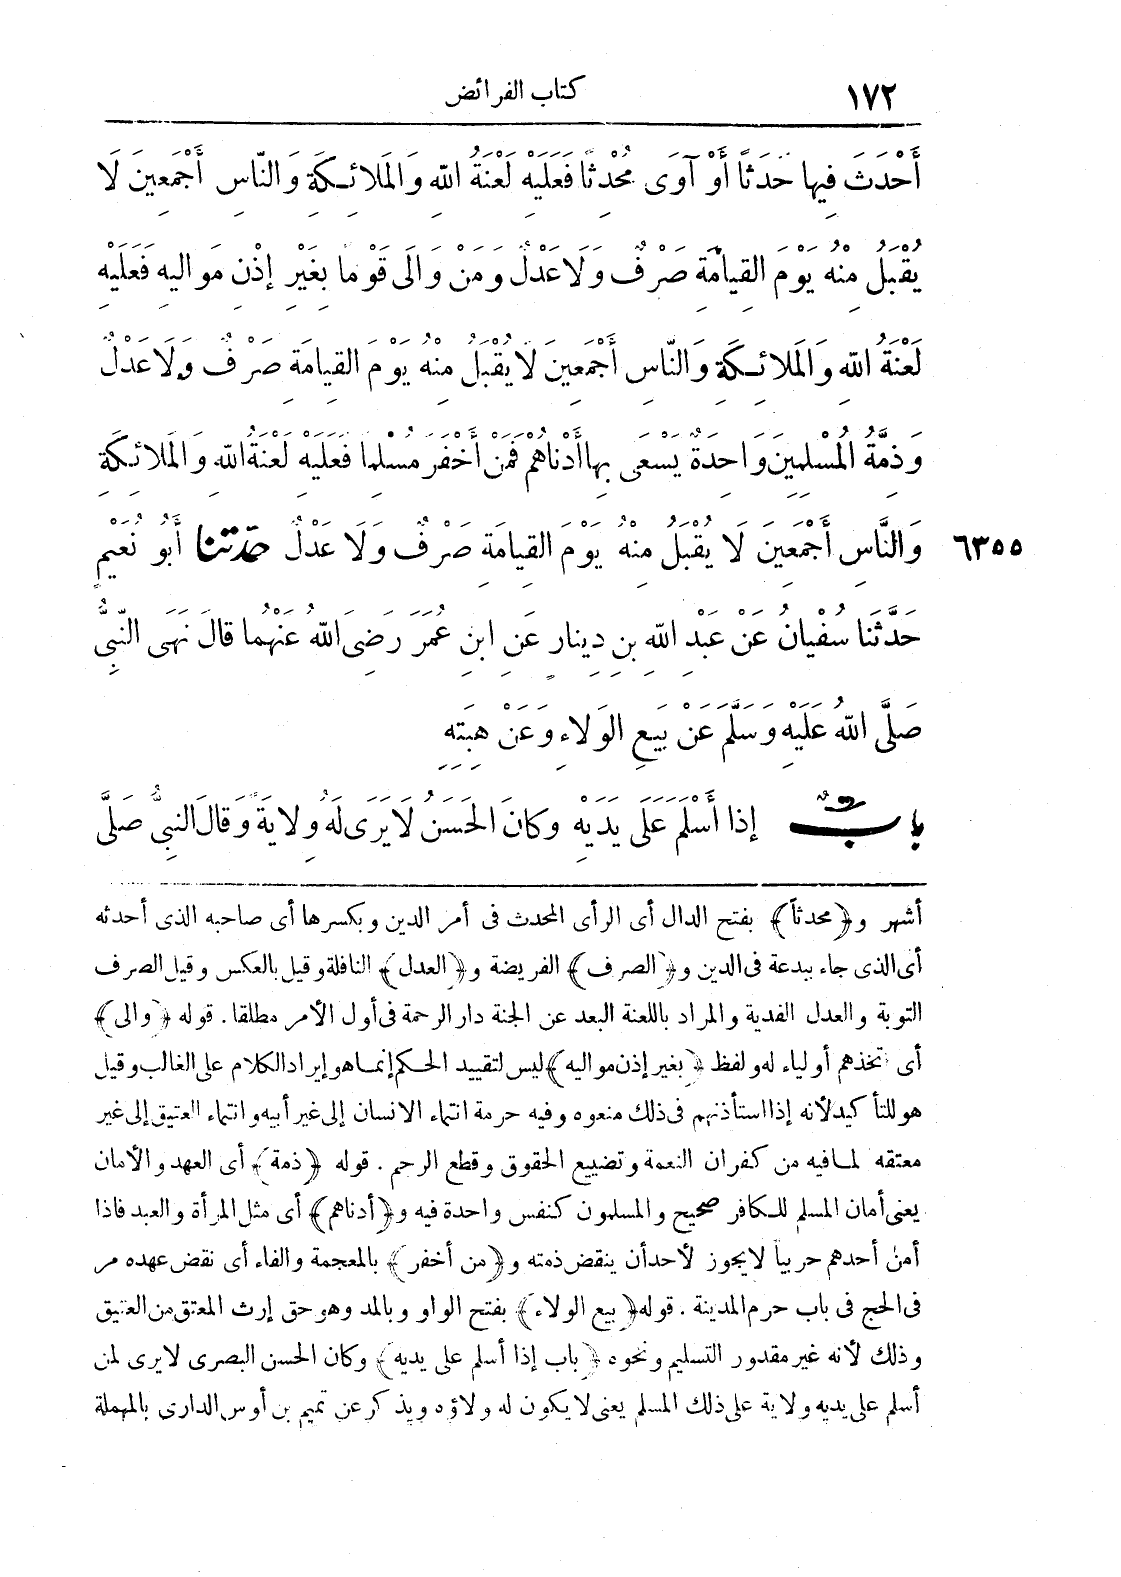 ١٧٢ كتاب الفرائض
أَحْدَثَ فِيها حَدَثاً أَوْ آوَى مُحْدِثًا فَعَلَيْهِ لَعْنَةُ اللهِ وَالمَلائِكَةِ وَالنَّاسِ أَجْمَعِينَ لَا
يُقْبَلُ مِنْهُ يَوْمَ القِيامَةِ صَرْفٌ وَلَا عَدْلٌ وَمَنْ وَالَى قَوْمًا بِغَيْرِ إِذْنِ مَوالِيهِ فَعَلَيْهِ
لَعْنَةُ اللهِ وَالمَلائِكَةِ وَالنَّاسِ أَجْمَعِينَ لَا يُقْبَلُ مِنْهُ يَوْمَ القِيامَةِ صَرْفٌ وَلَا عَدْلٌ
وَذِمَّةُ المُسْلِمِينَ وَاحِدَةٌ يَسْعَى بِها أَدْناهُمْ فَمَنْ أَخْفَرَ مُسْلِمًا فَعَلَيْهِ لَعْنَةُ اللهِ وَالمَلائِكَةِ
وَالنَّاسِ أَجْمَعِينَ لَا يُقْبَلُ مِنْهُ يَوْمَ القِيامَةِ صَرْفٌ وَلَا عَدْلٌ حَدَّثَنا أَبُو نُعَيْمٍ ٦٣٥٥
حَدَّثَنا سُفْيانُ عَنْ عَبْدِ اللهِ بنِ دِينارٍ عَنِ ابنِ عُمَرَ رَضِىَ اللهُ عَنْهُما قالَ نَهَى النَّبِىُّ
صَلَّى اللهُ عَلَيْهِ وَسَلَّمَ عَنْ بَيعِ الوَلاءِ وَعَنْ هِبَتِهِ
بابٌ إذا أَسْلَمَ عَلَى يَدَيْهِ وكانَ الحَسَنُ لَا يَرَى لَهُ وِلايَةً وَقالَ النبىُّ صَلَّى
أشهر و﴿محدثاً﴾ بفتح الدال أى الرأى المحدث فى أمر الدين وبكسرها أى صاحبه الذى أحدثه
أى الذى جاء ببدعة فى الدين و﴿الصرف﴾ الفريضة و﴿العدل﴾ النافلة وقيل بالعكس وقيل الصرف
التوبة والعدل الفدية والمراد باللعنة البعد عن الجنة دار الرحمة فى أول الأمر مطلقا. قوله ﴿والى﴾
أى اتخذهم أولياء له ولفظ ﴿بغير إذن مواليه﴾ ليس لتقييد الحكم إنما هو إيراد الكلام على الغالب وقيل
هو للتأكيد لأنه إذا استأذنهم فى ذلك منعوه وفيه حرمة انتماء الانسان إلى غير أبيه وانتماء العتيق إلى غير
معتقه لما فيه من كفران النعمة وتضييع الحقوق وقطع الرحم. قوله ﴿ذمة﴾ أى العهد والأمان
يعنى أمان المسلم للكافر صحيح والمسلمون كنفس واحدة فيه و﴿أدناهم﴾ أى مثل المرأة والعبد فاذا
أمن أحدهم حربياً لا يجوز لأحد أن ينقض ذمته و﴿من أخفر﴾ بالمعجمة والفاء أى نقض عهده مر
فى الحج فى باب حرم المدينة. قوله ﴿بيع الولاء﴾ بفتح الواو وبالمد وهو حق إرث المعتق من العتيق
وذلك لأنه غير مقدور التسليم ونحوه ﴿باب إذا أسلم على يديه﴾ وكان الحسن البصرى لا يرى لمن
أسلم على يديه ولاية على ذلك المسلم يعنى لا يكون له ولاؤه ويذكر عن تميم بن أوس الدارى بالمهملة